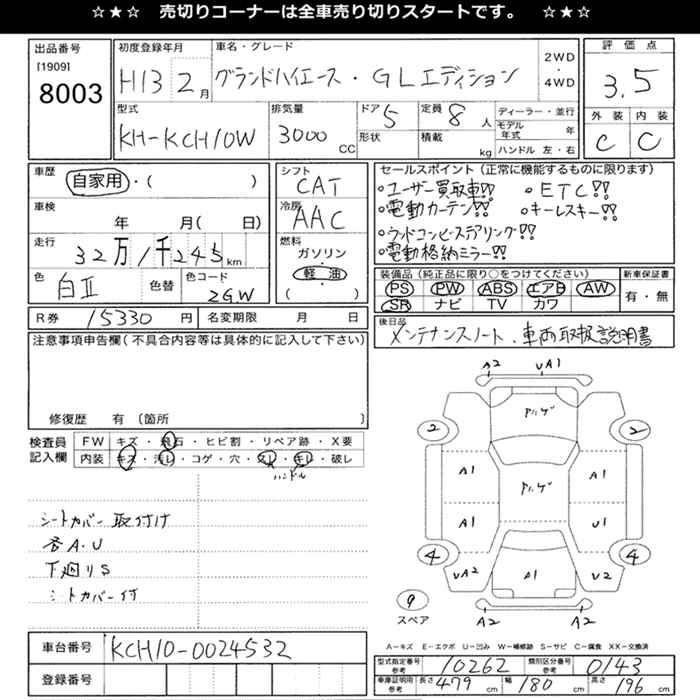 ☆★☆ 売切りコーナーは全車売り切りスタートです。 ☆★☆
出品番号 初度登録年月 車名・グレード 2WD 評価点
[1909] H13 2月 グランドハイエース・GLエディション ・ 3.5
8003 4WD
型式 排気量 ドア 5 定員 8人 ディーラー・並行 外装 内装
KH-KCH10W 3000 CC 形状 積載 kg モデル年式 年 C C
ハンドル 左・右
車歴 自家用・( ) シフト CAT セールスポイント (正常に機能するものに限ります)
車検 年 月( 日) 冷房 AAC ○ユーザー買取車!! ○ETC!!
○電動カーテン!! ○キーレスキー!!
走行 32万/千245km 燃料 ガソリン ○ウッドコンビステアリング!!
・軽油・ ○電動格納ミラー!!
色 白Ⅱ 色替 色コード 2GW ( ) 装備品 (純正品に限り○をつけてください) 新車保証書
PS PW ABS エアB AW 有・無
SR ナビ TV カワ
R券 15330円 名変期限 月 日 後日品
メンテナンスノート、車両取扱説明書
注意事項申告欄(不具合内容等は具体的に記入して下さい)
修復歴 有 (箇所 )
検査員 FW キズ・飛石・ヒビ割・リペア跡・X要
記入欄 内装 キズ・汚レ・コゲ・穴・スレ・キレ・破レ
ハンドル
シートカバー取付け
各A.U
下廻りS
シートカバー付
A2 UA1
アハゲ
2 2
A1 アハゲ A1
A1 U1
4 4
UA2 A1 U2
9 A2 A2
スペア
A-キズ E-エクボ U-凹み W-補修跡 S-サビ C-腐食 XX-交換済
車台番号 KCH10-0024532
登録番号
型式指定番号 参考 10262 類別区分番号 参考 0143
車庫証明用 参考 長さ 479cm 幅 180cm 高さ 196cm